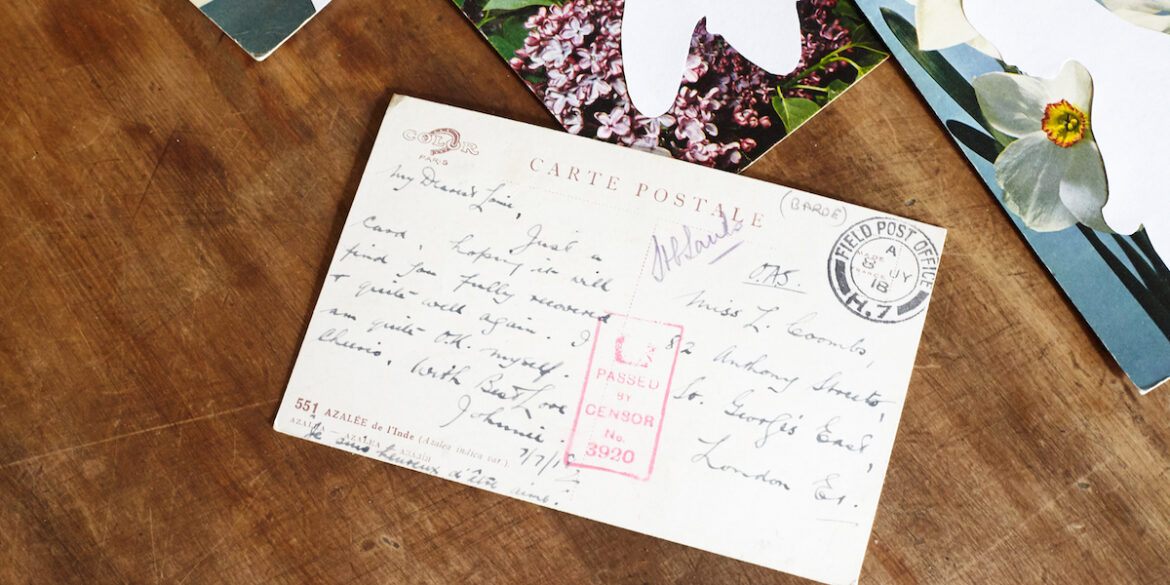 COLOR
PARIS
CARTE POSTALE
(BARDE)
My Dearest
Just a
Card, hoping it will
find you fully recovered
& quite well again. I
am quite OK. myself.
Cheerio. With Best Love
Johnnie.
7/7/18
551 AZALÉE de l'Inde (Azalea indica var.)
AZALEA AZALEA AZALEE
Je suis heureux d'être aimé!
O.A.S.
Miss L. Coombs,
82 Anthony Street,
St. George's East,
London E1.
PASSED
BY
CENSOR
No.
3920
FIELD POST OFFICE
A
8 JY
18
H.7
MADE
FRANCE